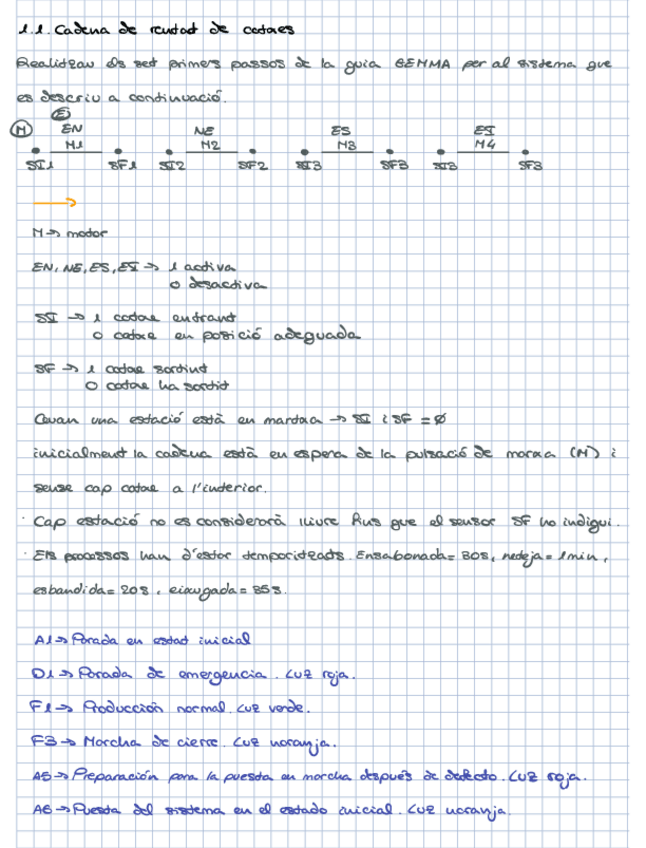 1.1. Cadena de rentat de cotxes
Realitzau els set primers passos de la guia GEMMA per al sistema que
es descriu a continuació.
E
M EN NE ES EI
M1 M2 M3 M4
SI1 SF1 SI2 SF2 SI3 SF3 SI3 SF3
M → motor
EN, NE, ES, EI → 1 activa
0 desactiva
SI → 1 cotxe entrant
0 cotxe en posició adeguada
SF → 1 cotxe sortint
0 cotxe ha sortit
Cuan una estació està en martxa → SI i SF = ∅
inicialment la cadena està en espera de la pulsació de marxa (M) i
sense cap cotxe a l'interior.
· Cap estació no es considerarà lliure fins que el sensor SF ho indigui.
· Els processos han d'estar temporitzats. Ensabonada = 30s, neteja = 1min,
esbandida = 20s, eixugada = 35s.
A1 → Parada en estat inicial
D1 → Parada de emergencia. Luz roja.
F1 → Producción normal. Luz verde.
F3 → Marcha de cierre. Luz naranja.
A5 → Preparación para la puesta en marcha después de defecto. Luz roja.
A6 → Puesta del sistema en el estado inicial. Luz naranja.